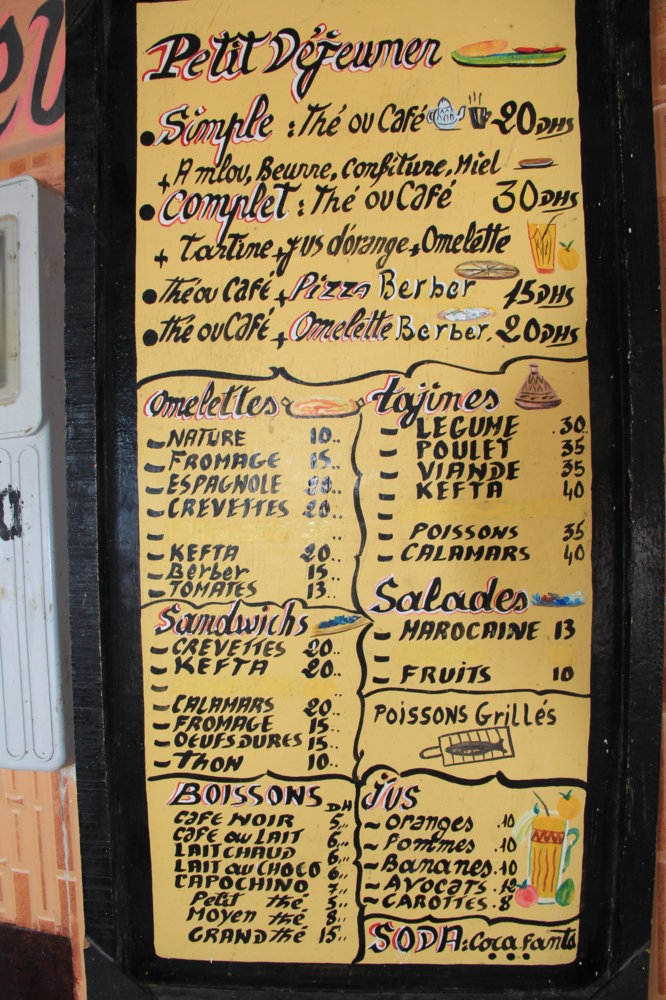 Petit Déjeuner
• Simple : Thé ou Café 20 DHS
+ Amlou, Beurre, confiture, Miel
• Complet : Thé ou Café 30 DHS
+ tartine + jus d'orange + Omelette
• thé ou Café + Pizza Berber 15 DHS
• thé ou Café + Omelette Berber. 20 DHS
Omelettes
- NATURE 10..
- FROMAGE 15..
- ESPAGNOLE 20..
- CREVETTES 20..
-
- KEFTA 20..
- Berber 15..
- TOMATES 13..
tajines
- LEGUME .30.
- POULET 35
- VIANDE 35
- KEFTA 40
-
- POISSONS 35
- CALAMARS 40
Sandwichs
- CREVETTES 20..
- KEFTA 20..
-
- CALAMARS 20..
- FROMAGE 15..
- OEUFS DURES 15..
- THON 10..
Salades
- MAROCAINE 13
-
- FRUITS 10
POISSONS GrilléS
BOISSONS DH
CAFE NOIR 5,..
CAFE au LAIT 6,..
LAIT CHAUD 6,..
LAIT au CHOCO 6,..
CAPOCHINO 7,..
Petit thé 5,..
MOYEN thé 8,..
GRAND thé 15,..
JUS
~ Oranges .10
~ Pommes .10
~ Bananes .10
~ AVOCATS .12
~ CAROTTES . 8
SODA : Coca. fanta